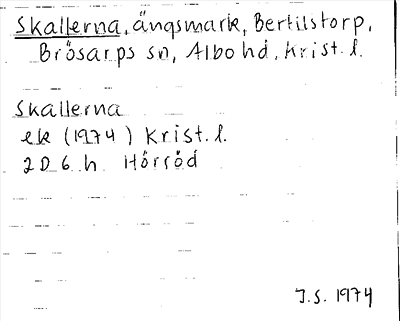 Skallerna, ängsmark, Bertilstorp,
Brösarps sn, Albo hd, Krist. l.
Skallerna
ek (1974) Krist. l.
2D 6 h Hörröd
J.S. 1974